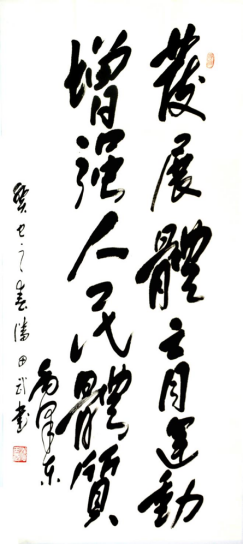 發展體育運動
增强人民體質
毛澤东
癸巳之春潘田武書